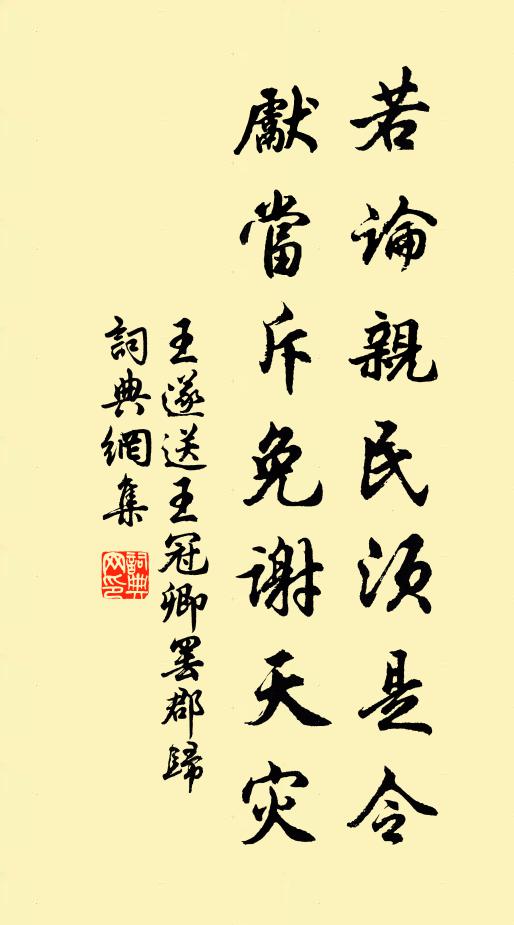 若論親民須是令
獻當斥免謝天災
王遂送王冠卿罷郡歸
詞典網集
詞典網印